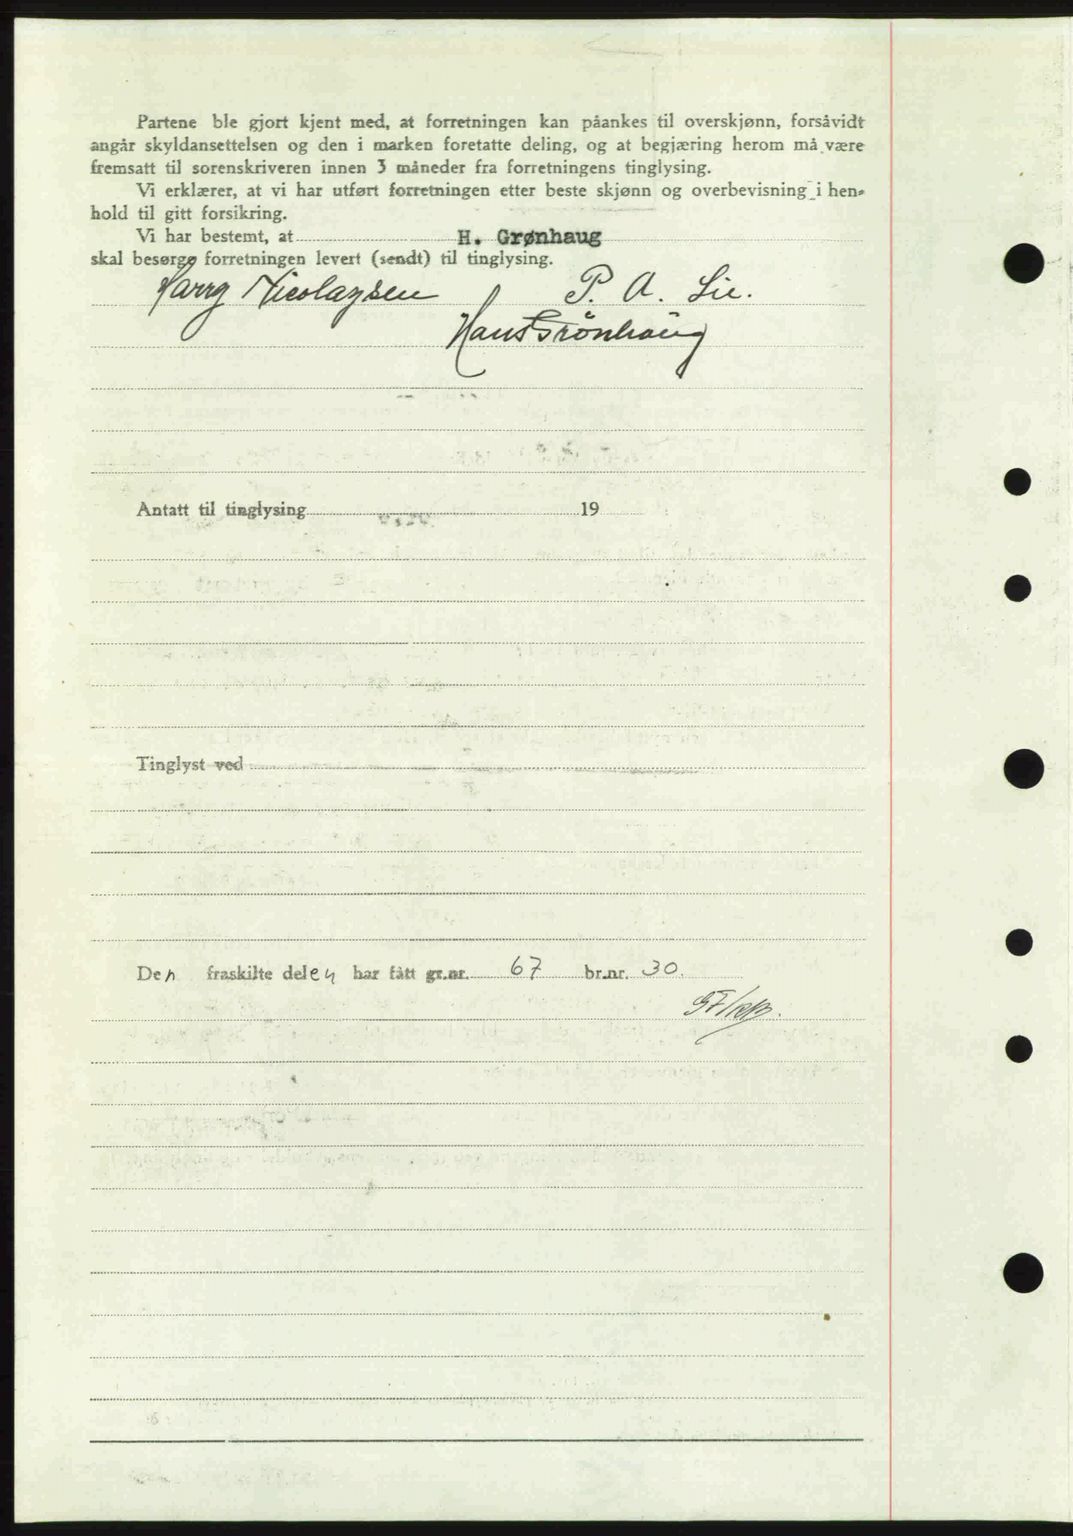 Partene ble gjort kjent med, at forretningen kan påankes til overskjønn, forsåvidt
angår skyldansettelsen og den i marken foretatte deling, og at begjæring herom må være
fremsatt til sorenskriveren innen 3 måneder fra forretningens tinglysing.
Vi erklærer, at vi har utført forretningen etter beste skjønn og overbevisning i hen-
hold til gitt forsikring.
Vi har bestemt, at H. Grønhaug
skal besørge forretningen levert (sendt) til tinglysing.
Harry Nicolaysen P. A. Lie.
Hans Grönhaug
Antatt til tinglysing 19
Tinglyst ved
Den fraskilte delen har fått gr.nr. 67 br.nr. 30.